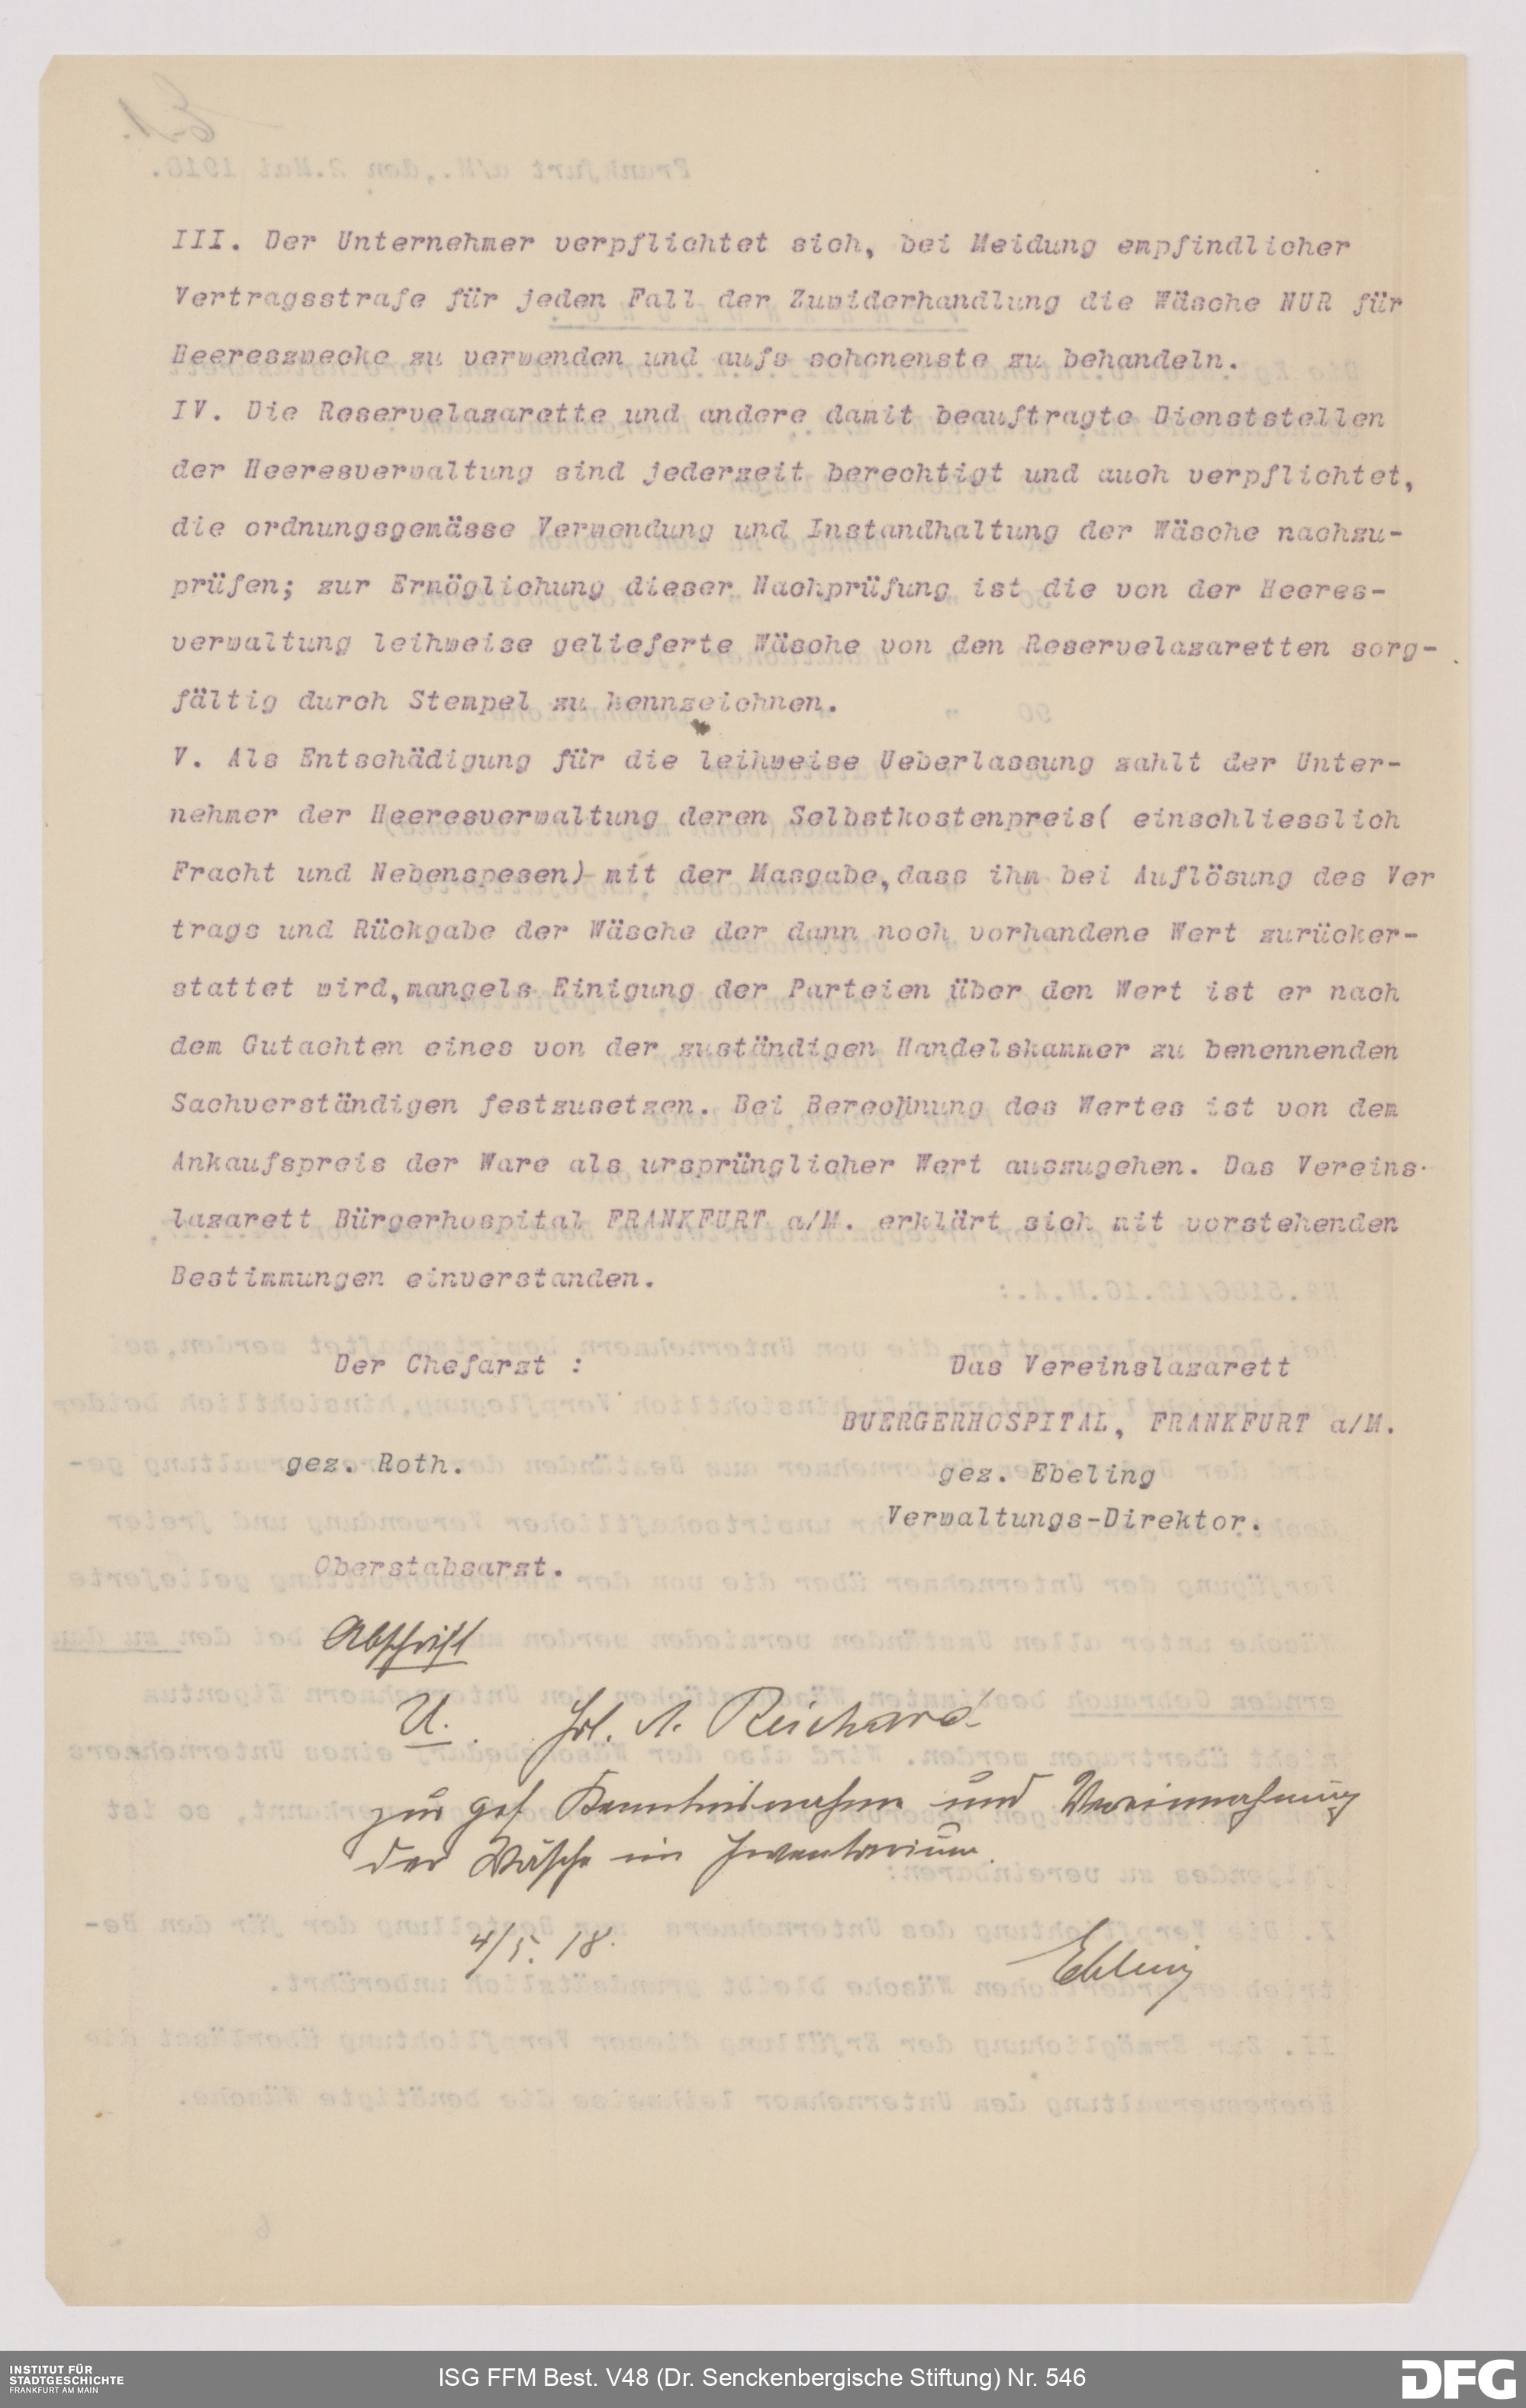 III. Der Unternehmer verpflichtet sich, bei Meidung empfindlicher
Vertragsstrafe für jeden Fall der Zuwiderhandlung die Wäsche NUR für
Heereszwecke zu verwenden und aufs schonenste zu behandeln.
IV. Die Reservelazarette und andere damit beauftragte Dienststellen
der Heeresverwaltung sind jederzeit berechtigt und auch verpflichtet,
die ordnungsgemässe Verwendung und Instandhaltung der Wäsche nachzu-
prüfen; zur Ermöglichung dieser Nachprüfung ist die von der Heeres-
verwaltung leihweise gelieferte Wäsche von den Reservelazaretten sorg-
fältig durch Stempel zu kennzeichnen.
V. Als Entschädigung für die leihweise Ueberlassung zahlt der Unter-
nehmer der Heeresverwaltung deren Selbstkostenpreis( einschliesslich
Fracht und Nebenspesen) mit der Masgabe,dass ihm bei Auflösung des Ver
trags und Rückgabe der Wäsche der dann noch vorhandene Wert zurücker-
stattet wird,mangels Einigung der Parteien über den Wert ist er nach
dem Gutachten eines von der zuständigen Handelskammer zu benennenden
Sachverständigen festzusetzen. Bei Berechnung des Wertes ist von dem
Ankaufspreis der Ware als ursprünglicher Wert auszugehen. Das Vereins-
lazarett Bürgerhospital FRANKFURT a/M. erklärt sich mit vorstehenden
Bestimmungen einverstanden.
Der Chefarzt :
Das Vereinslazarett
BUERGERHOSPITAL, FRANKFURT a/M.
gez. Roth.
gez. Ebeling
Verwaltungs-Direktor.
Oberstabsarzt.
Abschrift
U. Frl. A. Reichard
zur gef Kenntnisnahme und Vereinnahmung
der Wäsche im Inventarium.
4/5. 18.
Ebeling
INSTITUT FÜR
STADTGESCHICHTE
FRANKFURT AM MAIN
ISG FFM Best. V48 (Dr. Senckenbergische Stiftung) Nr. 546
DFG